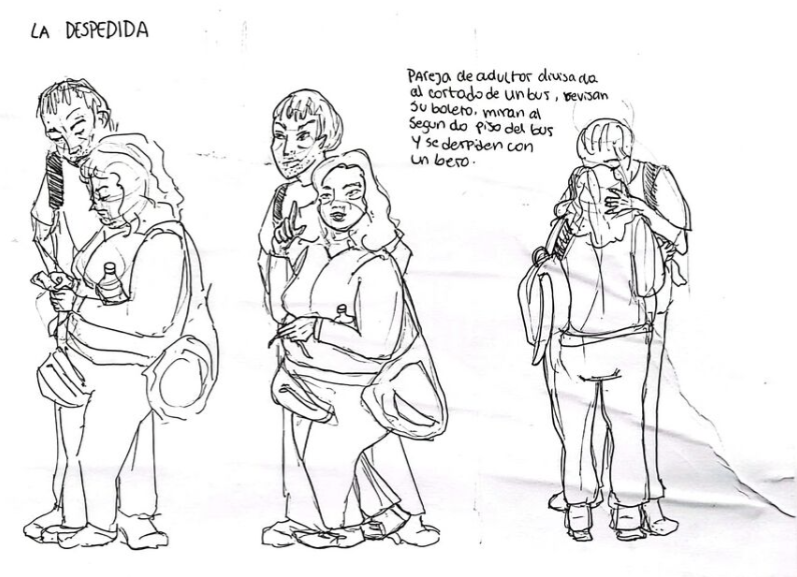 LA DESPEDIDA
Pareja de adultos divisada
al cortado de un bus, revisan
su boleto, miran al
segundo piso del bus
y se despiden con
un beso.